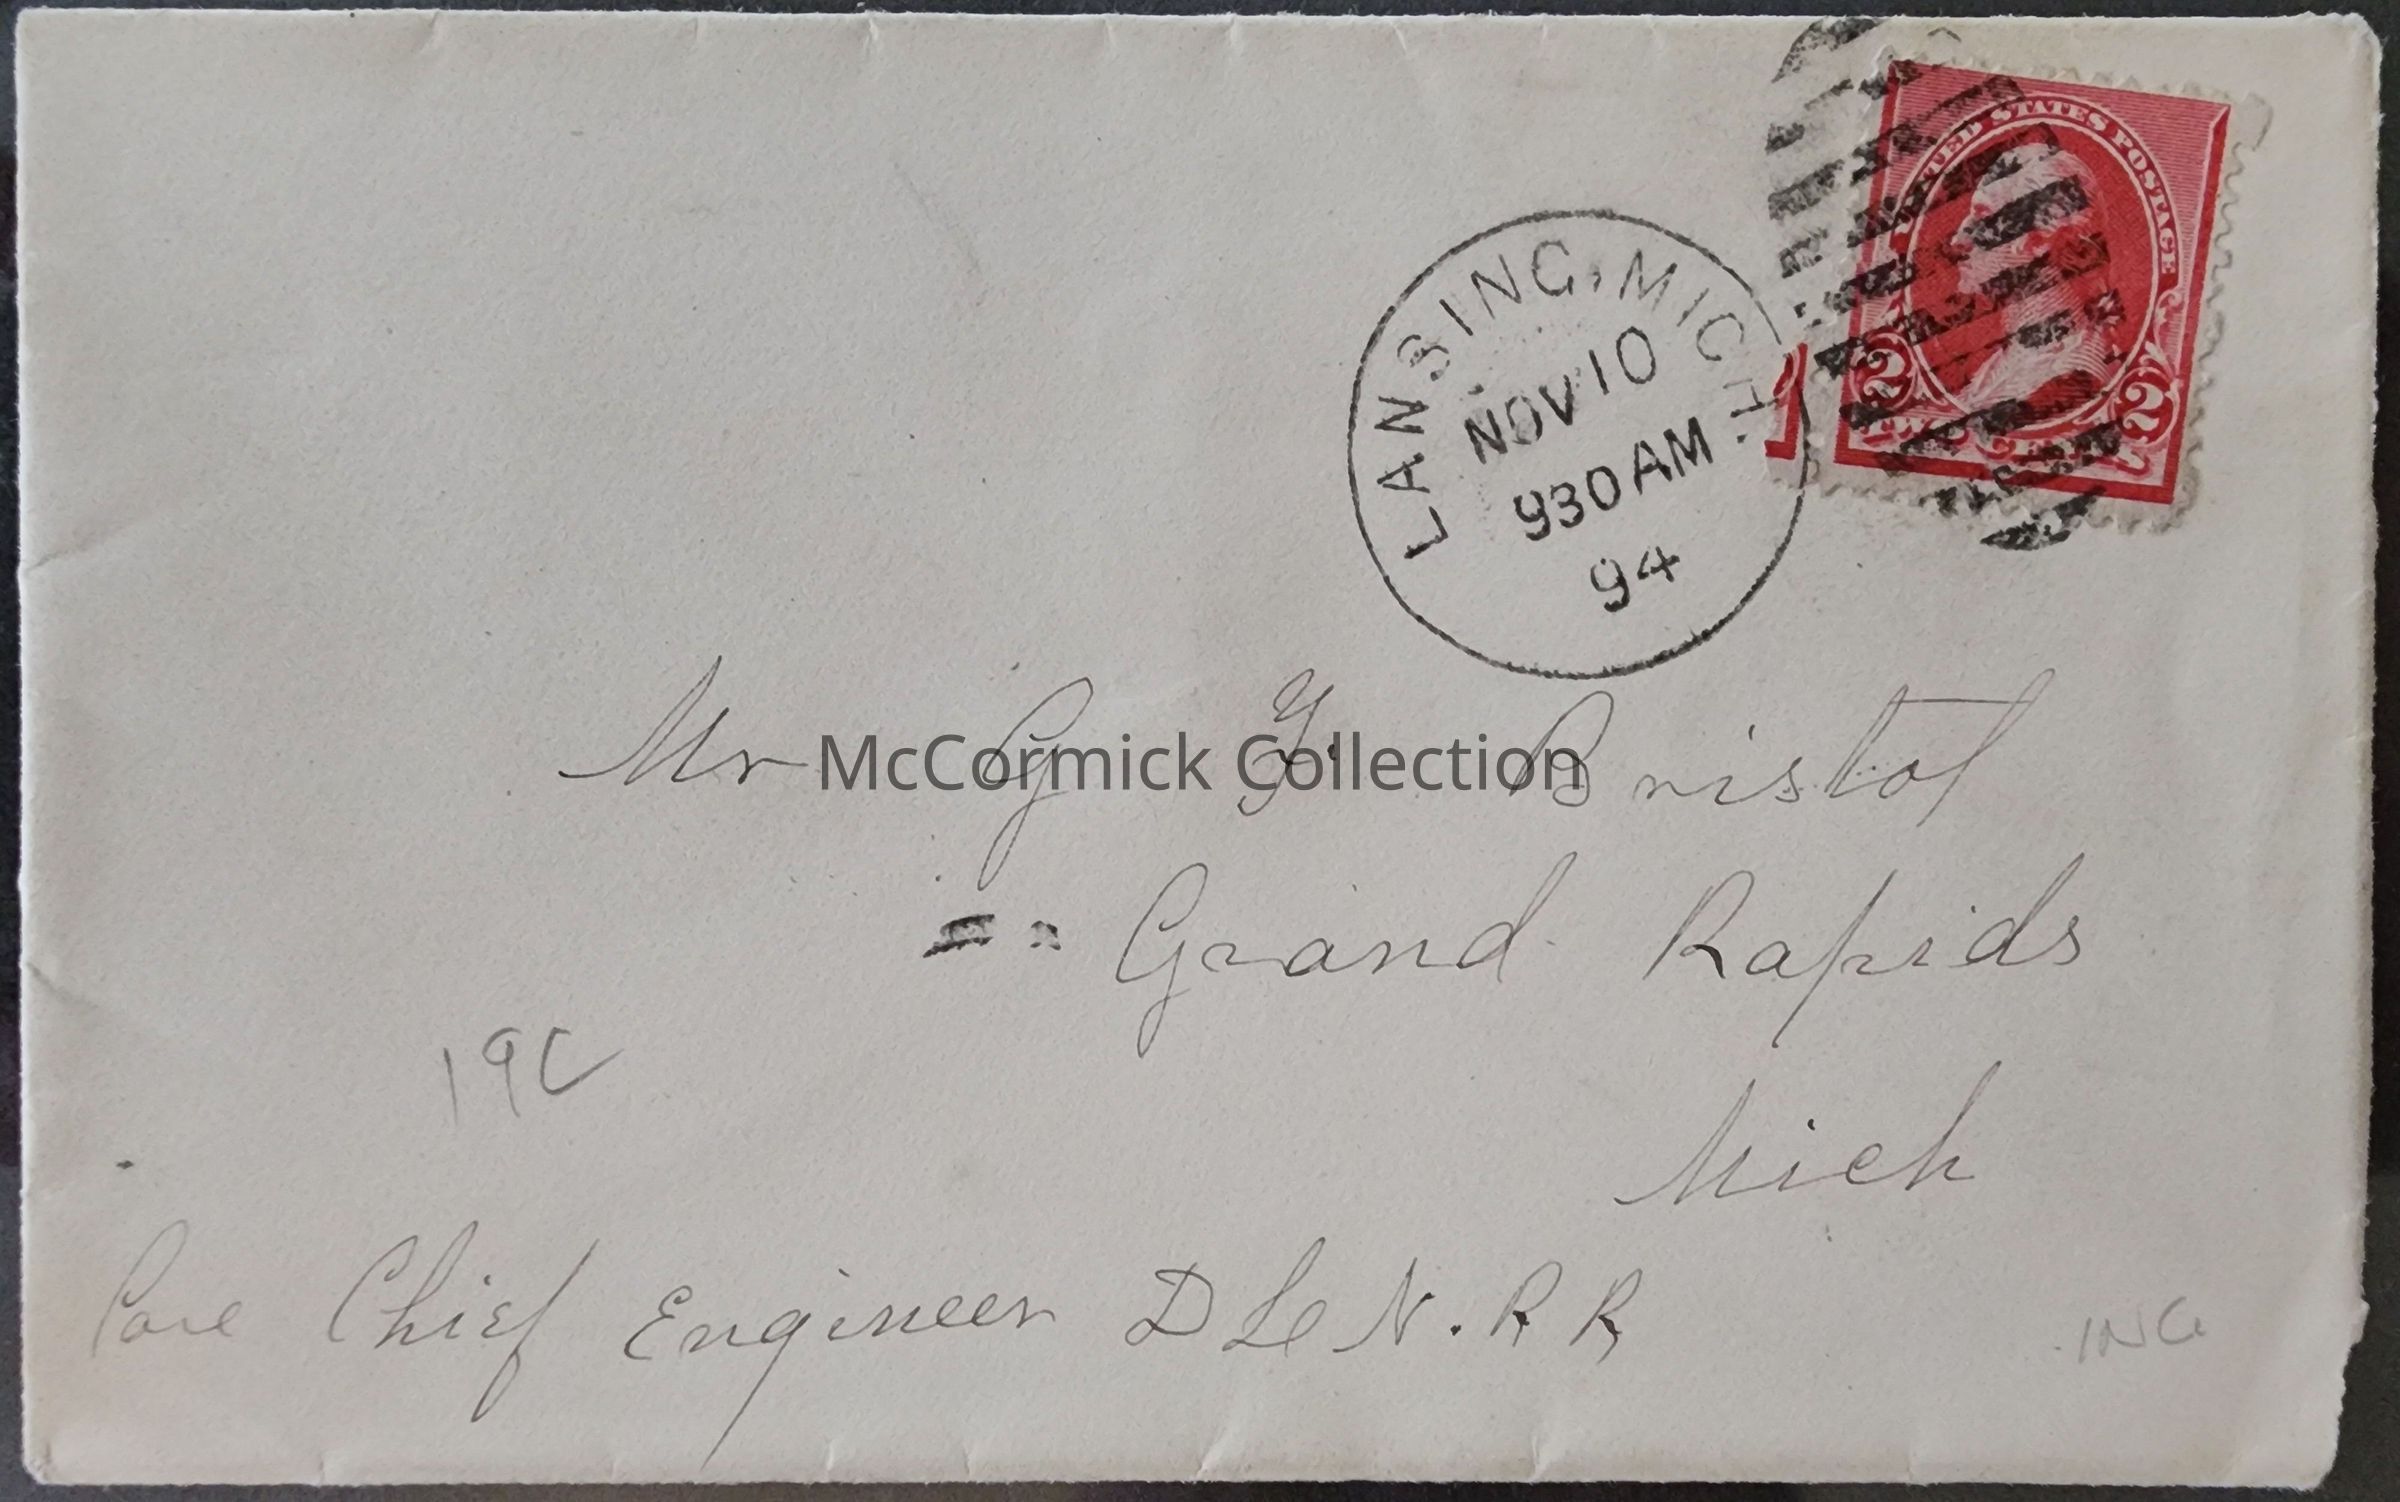 UNITED STATES POSTAGE
2 2
LANSING, MICH.
NOV 10
930 AM
94
Mr G. F. Bristol
McCormick Collection
Grand Rapids
Mich
19C
Care Chief Engineer D L & N. R R
ING